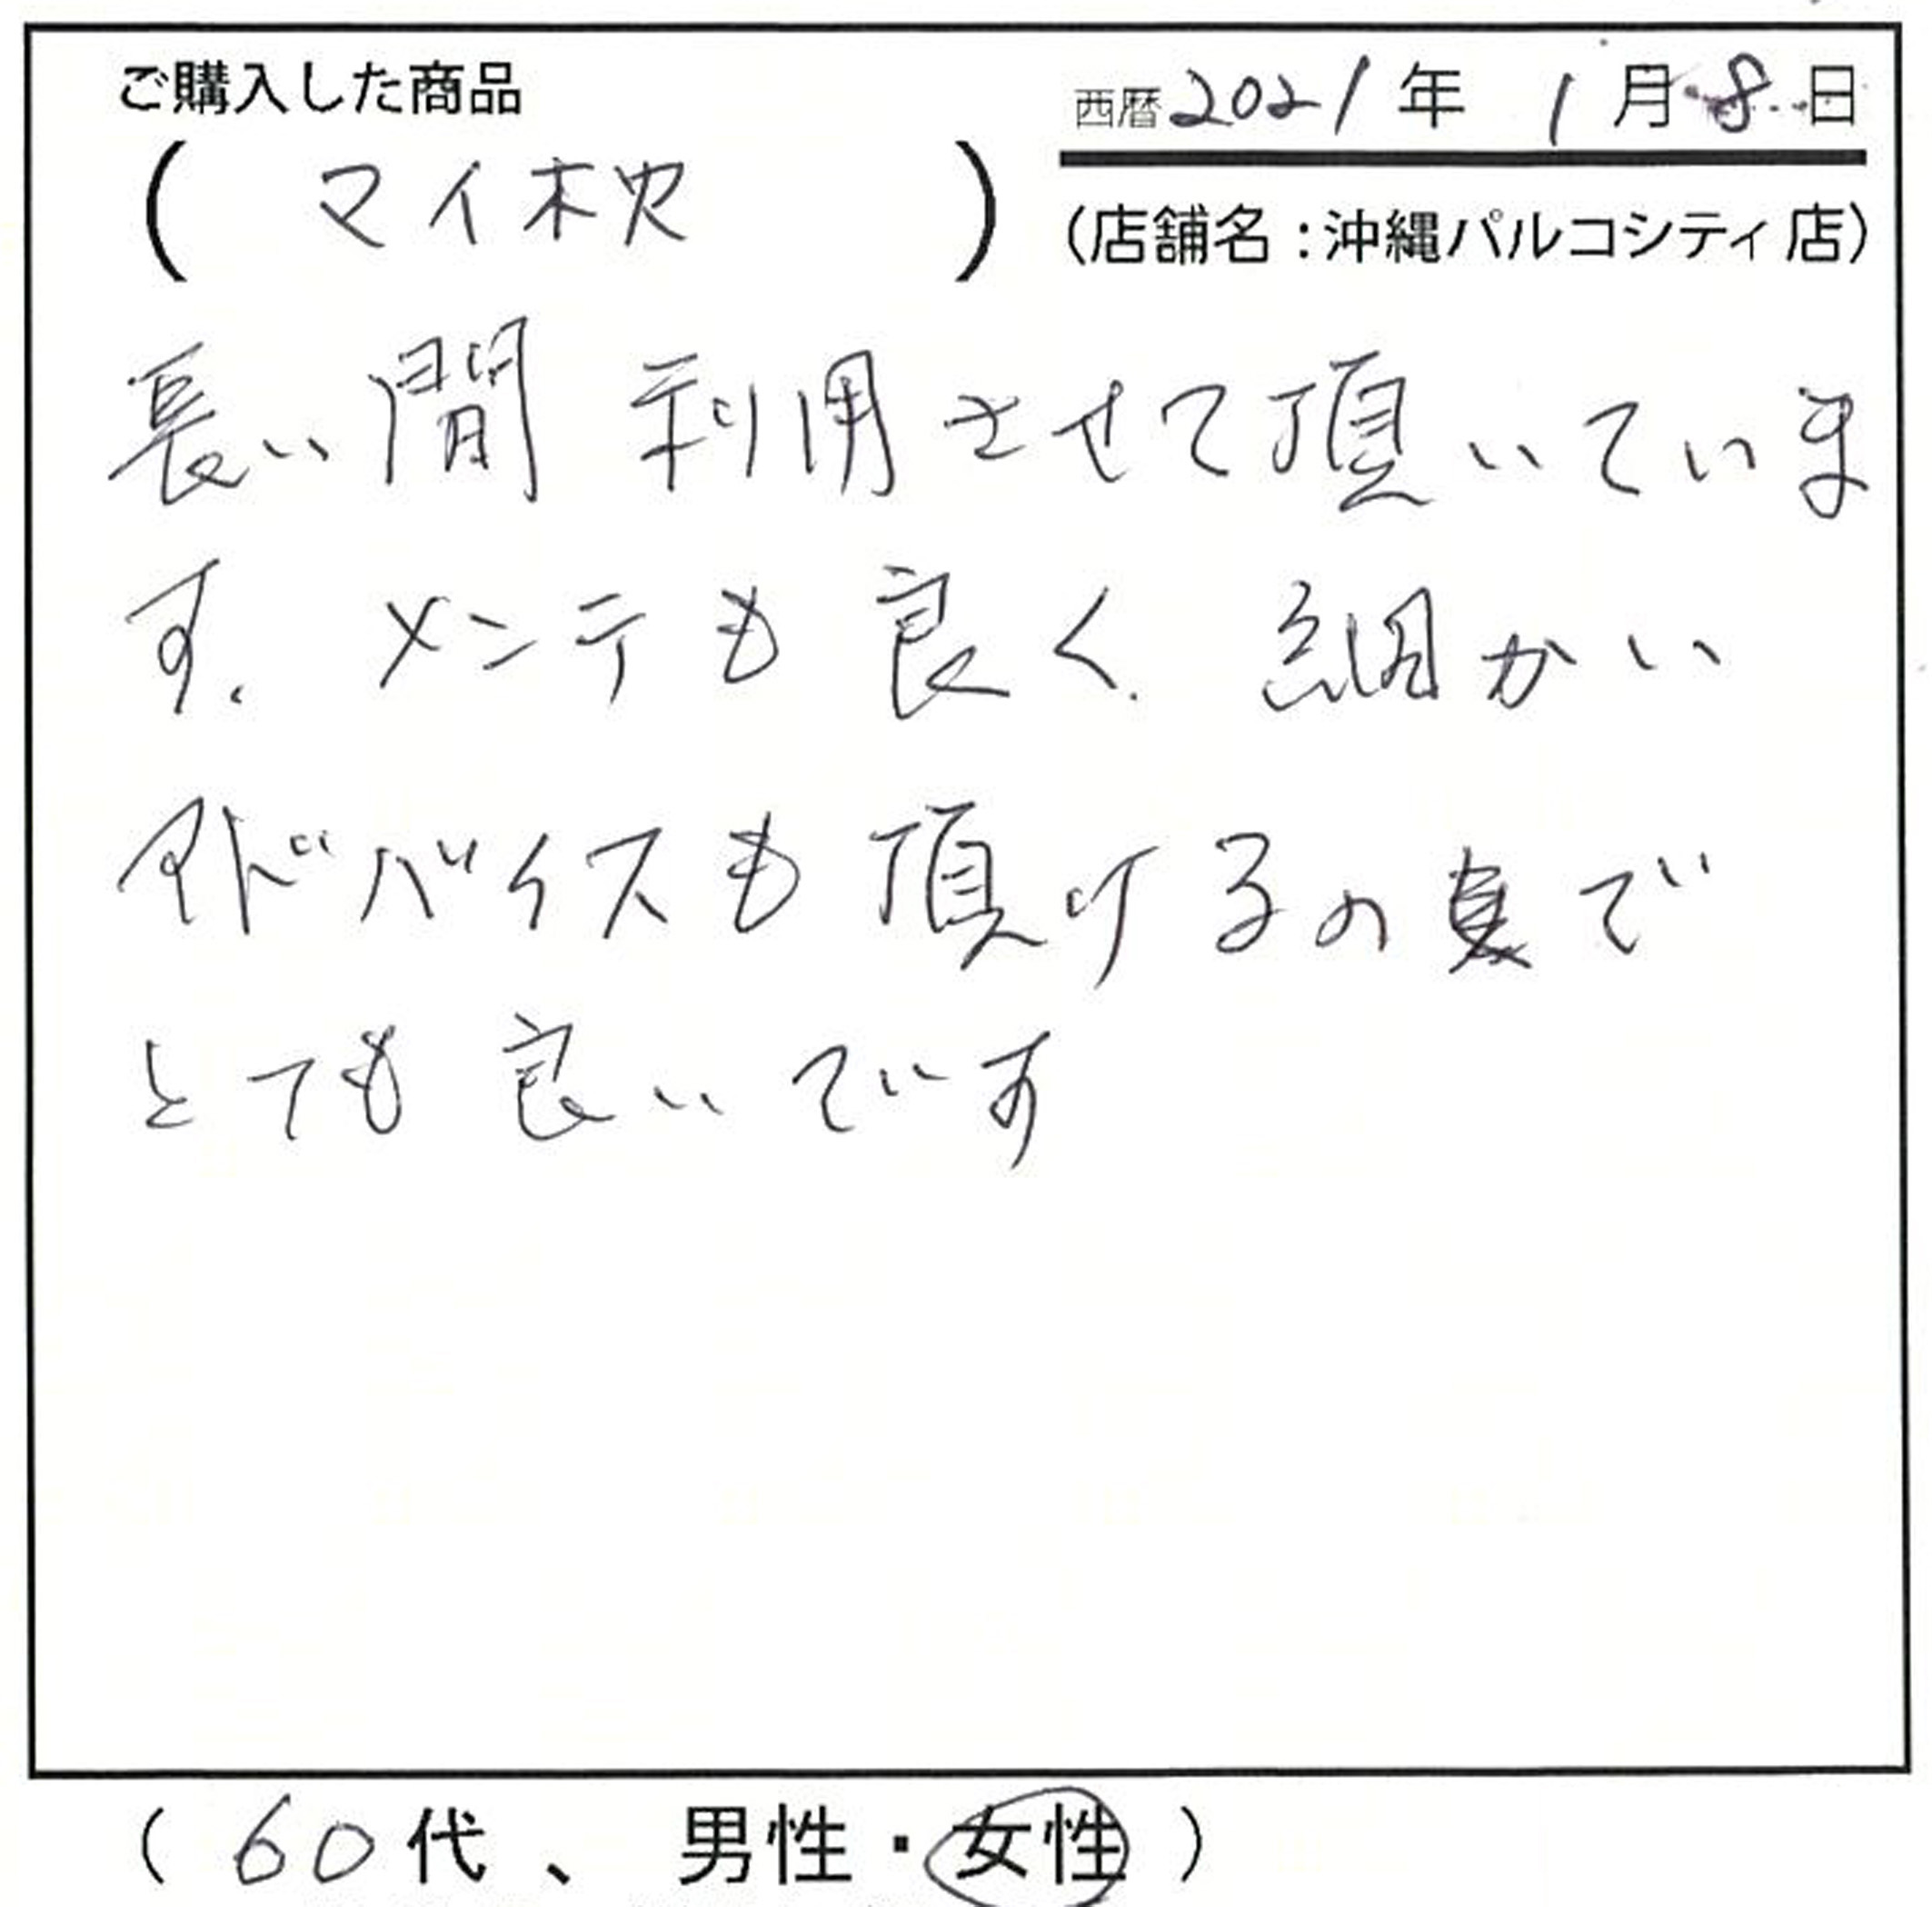 ご購入した商品
西暦2021年 1月8日
( マイ枕 )
(店舗名:沖縄パルコシティ店)
長い間 利用させて頂いていま
す。メンテも良く、細かい
アドバイスも頂けるの点で
とても良いです
(60代、男性・女性)